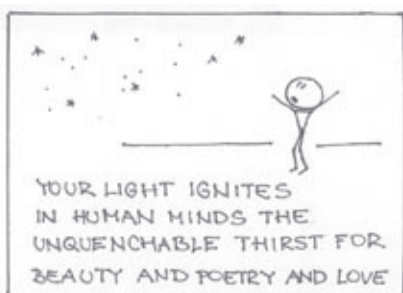 YOUR LIGHT IGNITES
IN HUMAN MINDS THE
UNQUENCHABLE THIRST FOR
BEAUTY AND POETRY AND LOVE